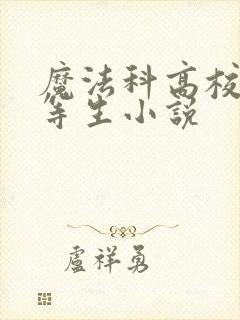 魔法科高校
等生小説
盧祥勇